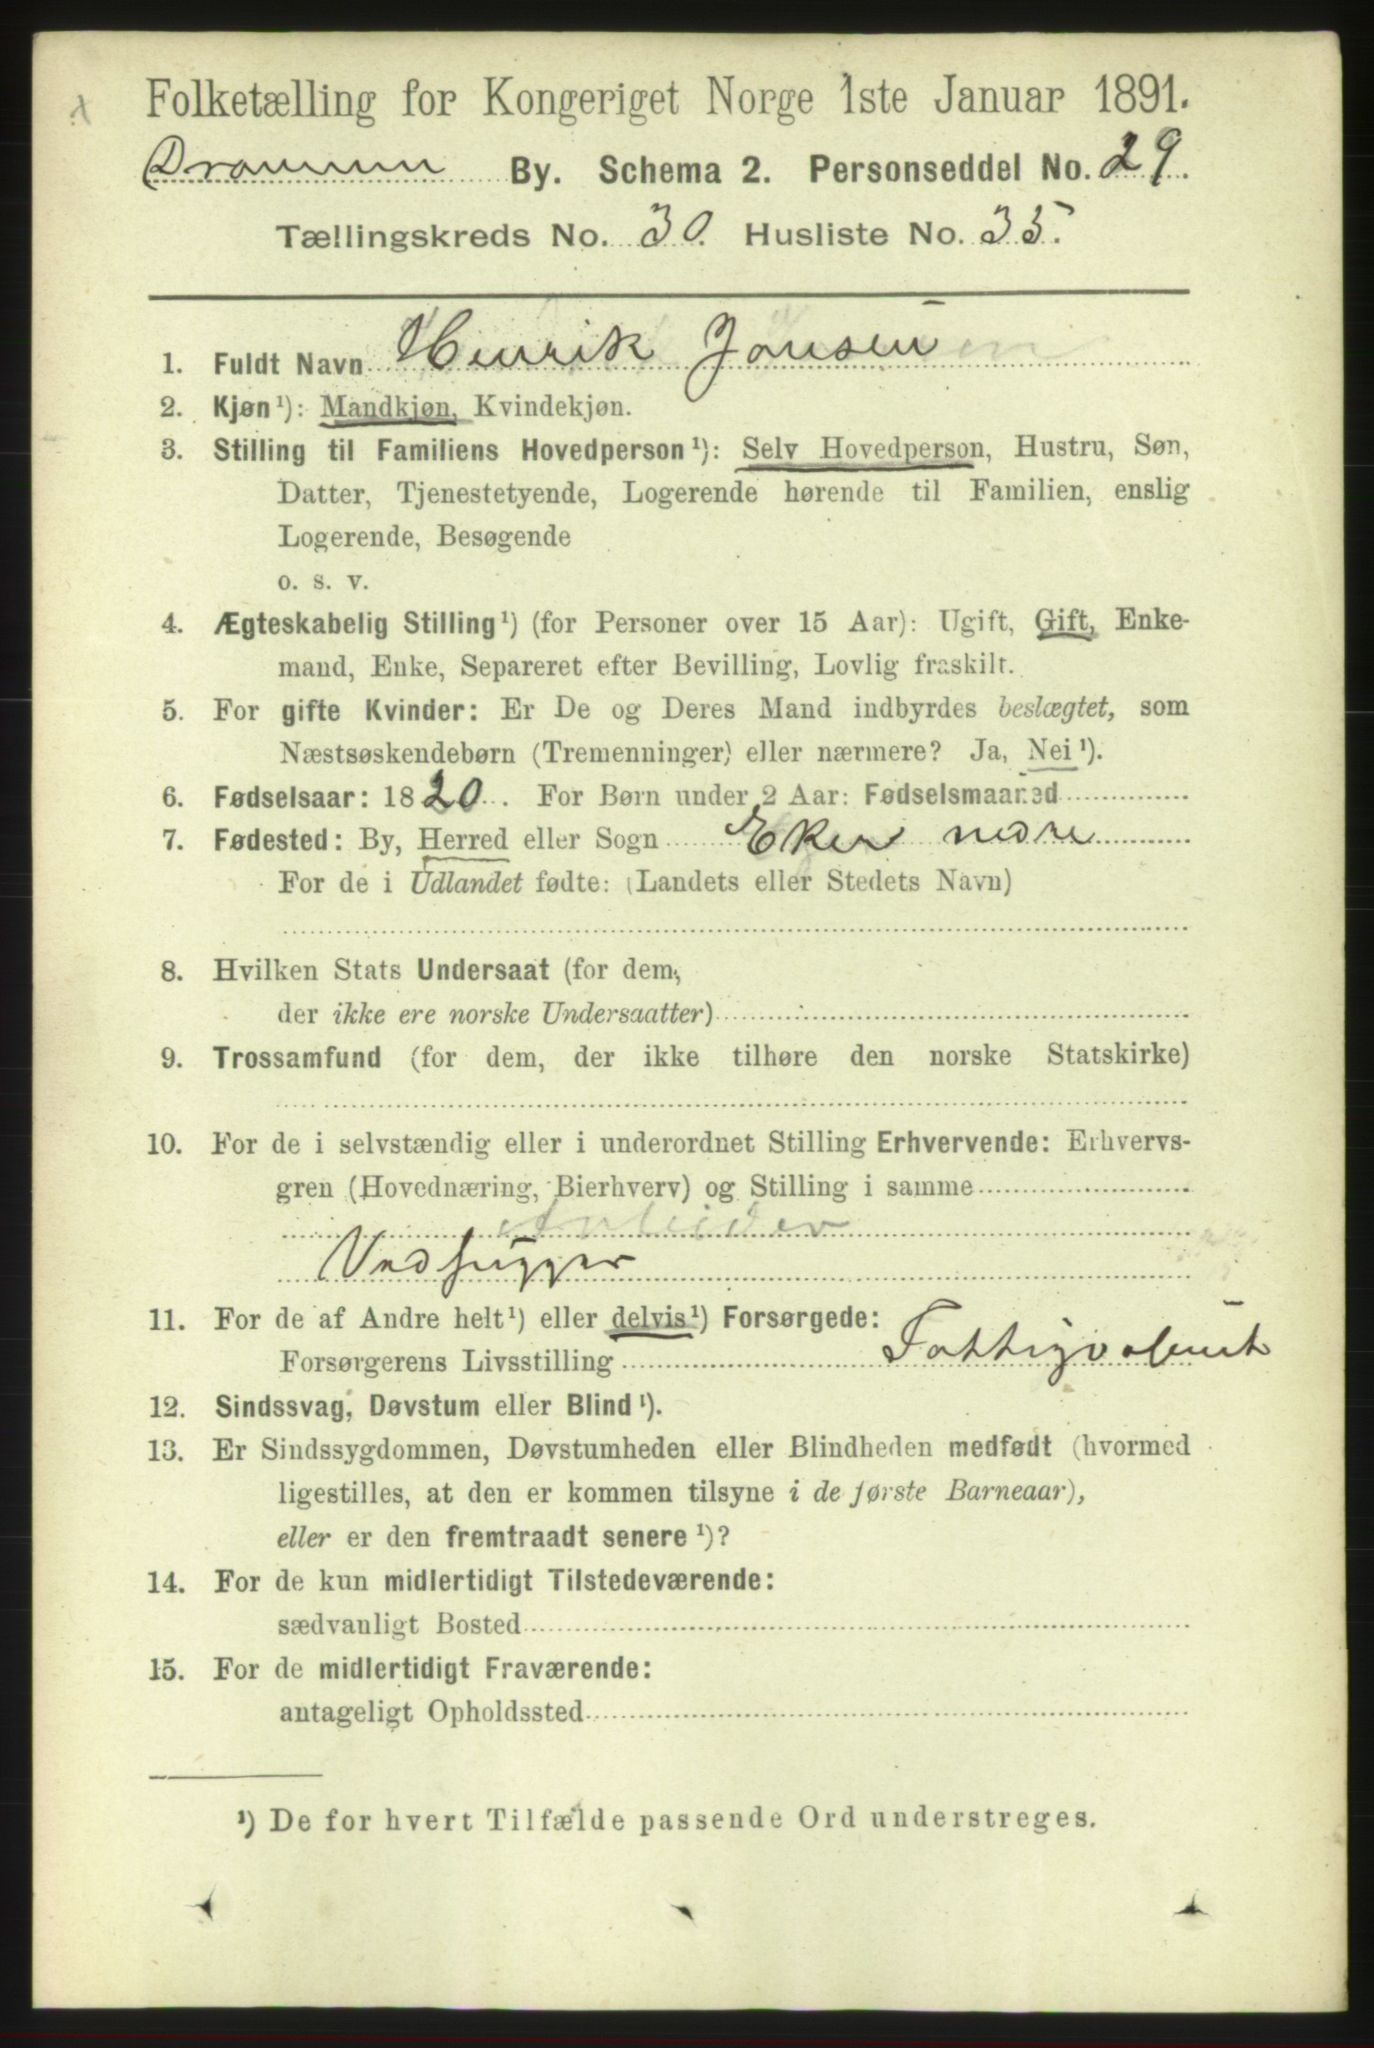 Folketælling for Kongeriget Norge 1ste Januar 1891.
Drammen By. Schema 2. Personseddel No. 29.
Tællingskreds No. 30. Husliste No. 35.
1. Fuldt Navn Henrik Jansen
2. Kjøn¹): Mandkjøn, Kvindekjøn.
3. Stilling til Familiens Hovedperson¹): Selv Hovedperson, Hustru, Søn,
Datter, Tjenestetyende, Logerende hørende til Familien, enslig
Logerende, Besøgende
o. s. v.
4. Ægteskabelig Stilling¹) (for Personer over 15 Aar): Ugift, Gift, Enke-
mand, Enke, Separeret efter Bevilling, Lovlig fraskilt.
5. For gifte Kvinder: Er De og Deres Mand indbyrdes beslægtet, som
Næstsøskendebørn (Tremenninger) eller nærmere? Ja, Nei¹).
6. Fødselsaar: 1820. For Børn under 2 Aar: Fødselsmaaned
7. Fødested: By, Herred eller Sogn Eker nedre
For de i Udlandet fødte: (Landets eller Stedets Navn)
8. Hvilken Stats Undersaat (for dem,
der ikke ere norske Undersaatter)
9. Trossamfund (for dem, der ikke tilhøre den norske Statskirke)
10. For de i selvstændig eller i underordnet Stilling Erhvervende: Erhvervs-
gren (Hovednæring, Bierhverv) og Stilling i samme
Arbeider
Vedhugger
11. For de af Andre helt¹) eller delvis¹) Forsørgede:
Forsørgerens Livsstilling
12. Sindssvag, Døvstum eller Blind¹).
13. Er Sindssygdommen, Døvstumheden eller Blindheden medfødt (hvormed
ligestilles, at den er kommen tilsyne i de første Barneaar),
eller er den fremtraadt senere¹)?
14. For de kun midlertidigt Tilstedeværende:
sædvanligt Bosted
15. For de midlertidigt Fraværende:
antageligt Opholdssted
¹) De for hvert Tilfælde passende Ord understreges.